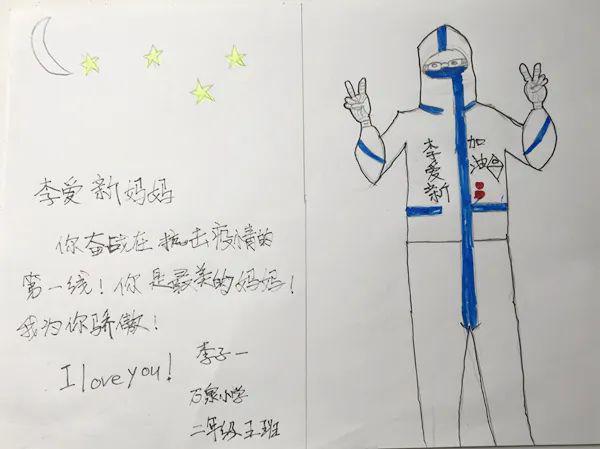 李爱新妈妈
你奋战在抗击疫情的
第一线！你是最美的妈妈！
我为你骄傲！
I love you!
李子一
万泉小学
二年级五班
李爱新
加油